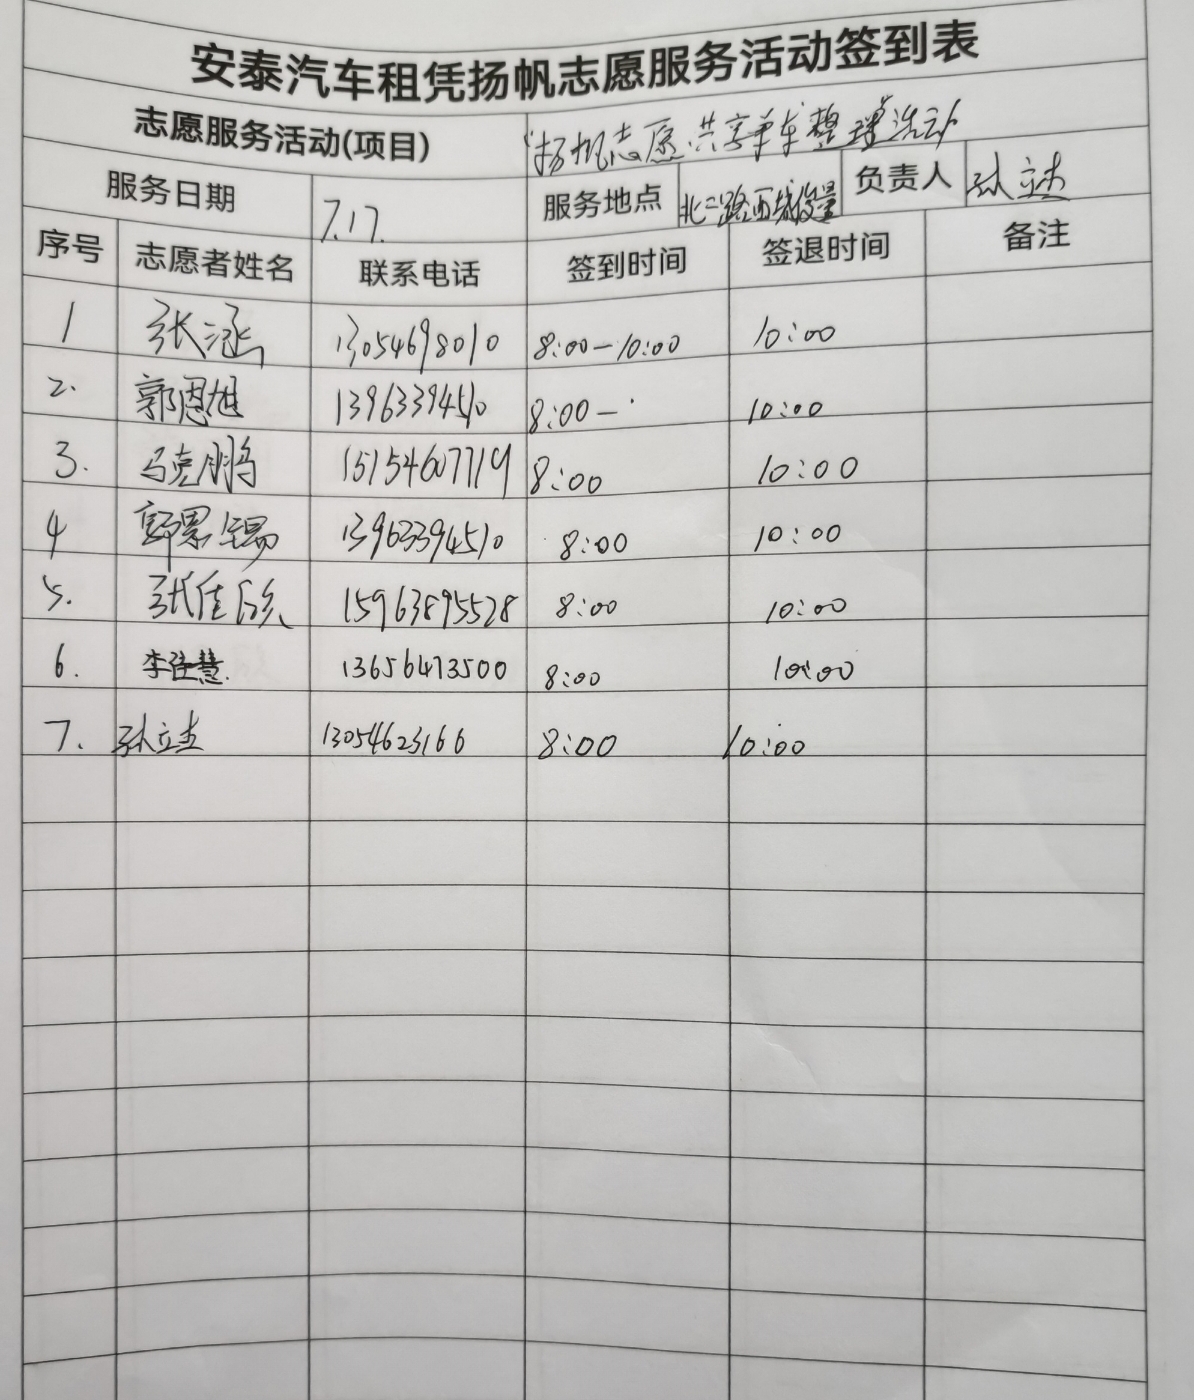 安泰汽车租凭扬帆志愿服务活动签到表
志愿服务活动(项目) “扬帆志愿.共享单车整理”活动
服务日期 7.17. 服务地点 北二路西城 负责人 孙立杰
序号 志愿者姓名 联系电话 签到时间 签退时间 备注
1 张涵 13054698010 8:00-10:00 10:00
2. 郭恩旭 13963394510 8:00- 10:00
3. 马克鹏 15154607719 8:00 10:00
4 13963394510 8:00 10:00
5. 张佳欣 15963895528 8:00 10:00
6. 李佳慧. 13656473500 8:00 10:00
7. 孙立杰 13054623166 8:00 10:00